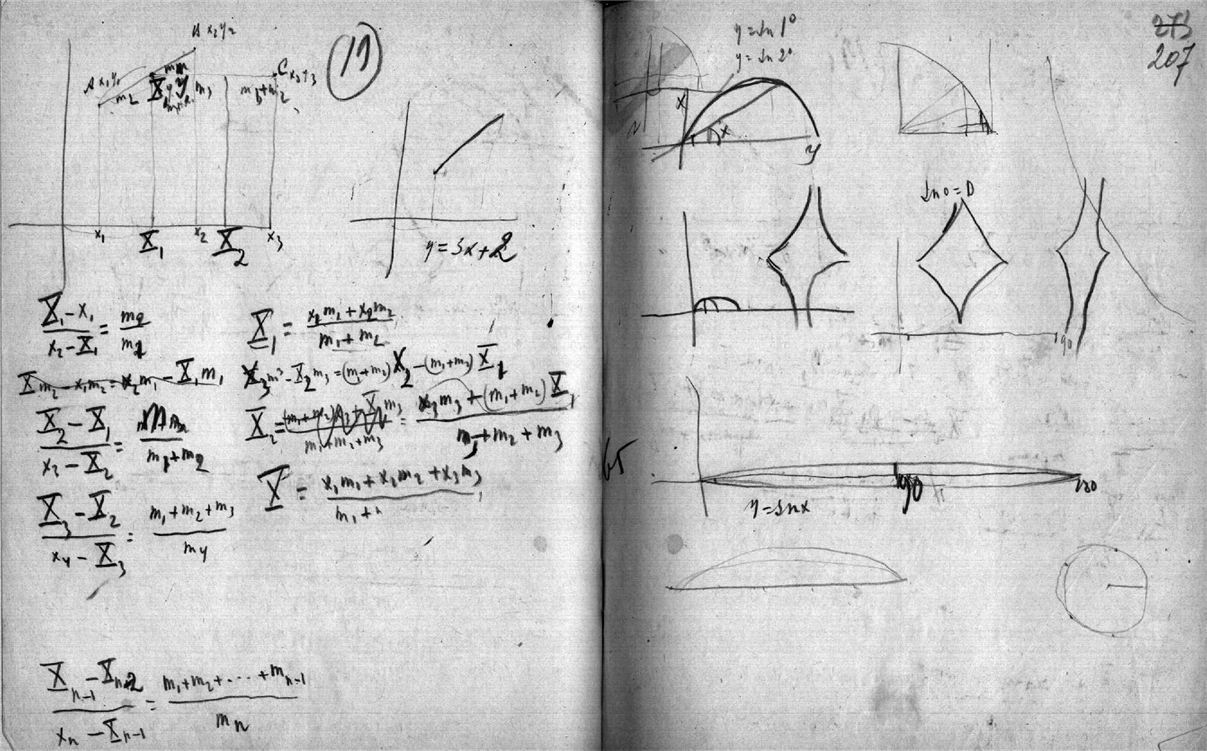 B x₂y₂
A x₁y₁
C x₃y₃
m₂
m₃
x₁ X₁ x₂ X₂ x₃
y = 3x+2
(X₁ − x₁)/(x₂ − X₁) = m₂/m₁
X₁ = (x₁m₁ + x₂m₂)/(m₁ + m₂)
X₁m₂ − x₁m₂ = x₂m₁ − X₁m₁
x₃m₃ − X₂m₃ = (m₁+m₂)X₂ − (m₁+m₂)X₁
(X₂ − X₁)/(x₃ − X₂) =
m₁+m₂
X₂ =
m₁+m₂+m₃
= (x₃m₃ + (m₁+m₂)X₁)/(m₁+m₂+m₃)
X = (x₁m₁ + x₂m₂ + x₃m₃)/(m₁+
(X₃ − X₂)/(x₄ − X₃) = (m₁+m₂+m₃)/m₄
(Xₙ₋₁ − Xₙ₋₂)/(xₙ − Xₙ₋₁) = (m₁+m₂+....+mₙ₋₁)/mₙ
273
207
y = Sn 1°
y = Sn 2°
X
x
y
Sn 0 = 0
90
65
90
180
y = Snx